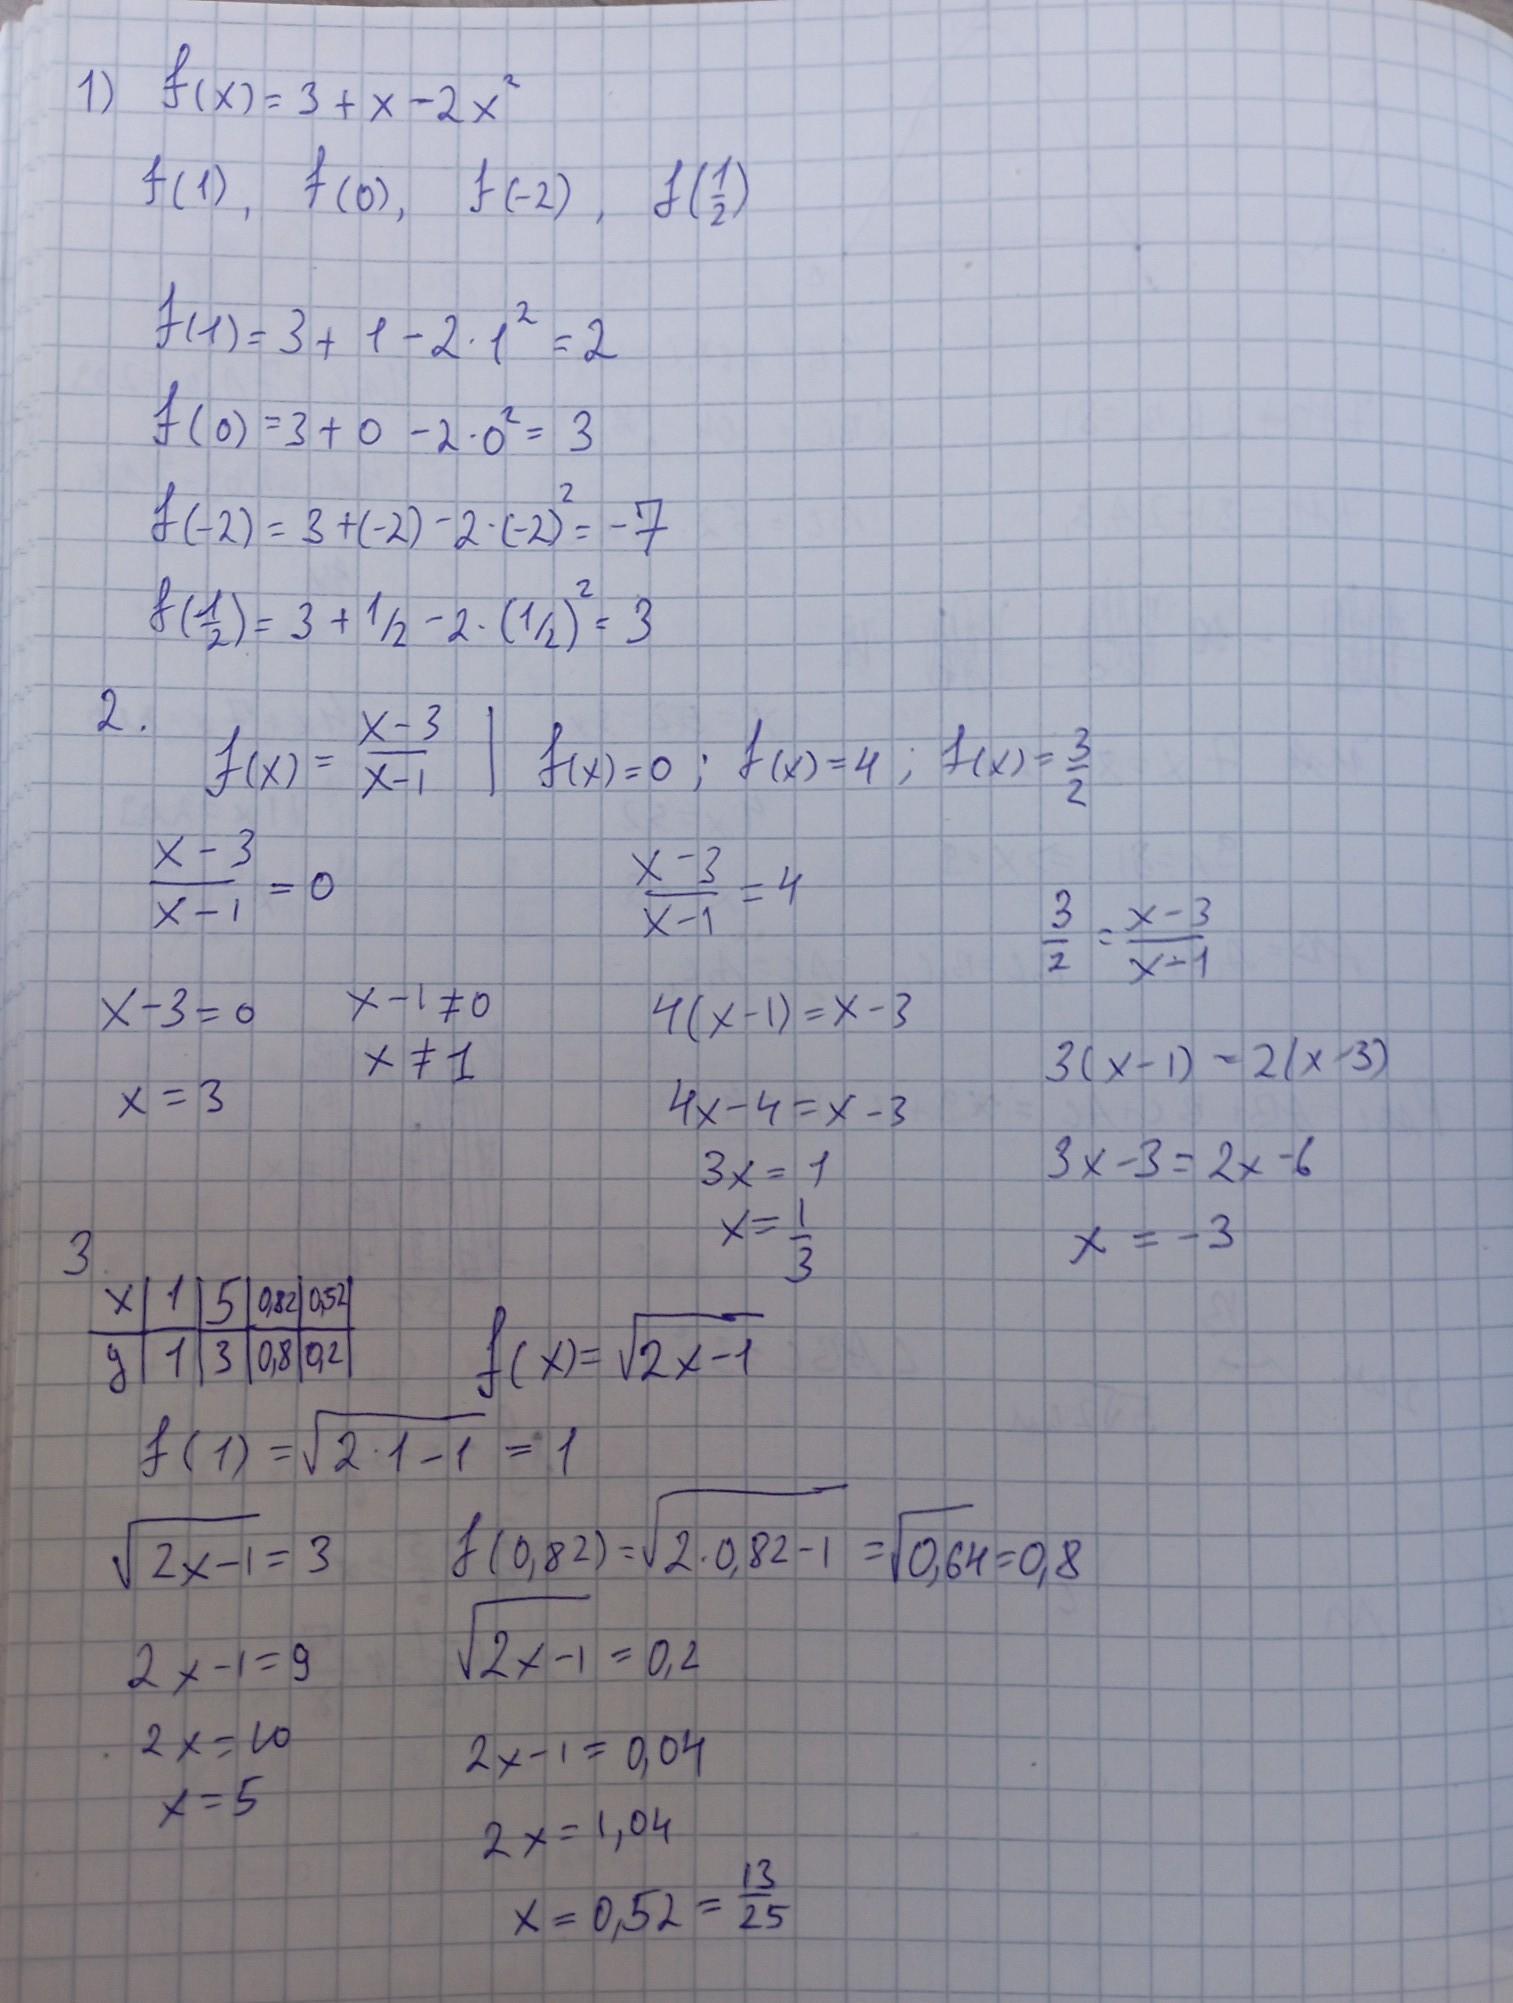 1) f(x) = 3 + x - 2x²
f(1), f(0), f(-2), f(1/2)
f(1) = 3 + 1 - 2·1² = 2
f(0) = 3 + 0 - 2·0² = 3
f(-2) = 3 + (-2) - 2·(-2)² = -7
f(1/2) = 3 + 1/2 - 2·(1/2)² = 3
2. f(x) = (x-3)/(x-1) | f(x) = 0; f(x) = 4; f(x) = 3/2
(x-3)/(x-1) = 0
x - 3 = 0 x - 1 ≠ 0
x ≠ 1
x = 3
(x-3)/(x-1) = 4
4(x-1) = x - 3
4x - 4 = x - 3
3x = 1
x = 1/3
3/2 = (x-3)/(x-1)
3(x-1) = 2(x-3)
3x - 3 = 2x - 6
x = -3
3
x | 1 | 5 | 0,82 | 0,52
y | 1 | 3 | 0,8 | 0,2
f(x) = √(2x-1)
f(1) = √(2·1-1) = 1
√(2x-1) = 3
2x - 1 = 9
2x = 10
x = 5
f(0,82) = √(2·0,82-1) = √0,64 = 0,8
√(2x-1) = 0,2
2x - 1 = 0,04
2x = 1,04
x = 0,52 = 13/25